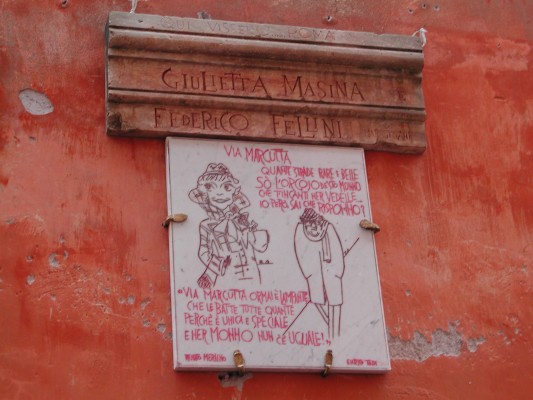 QUI VISSERO A ROMA
GIULIETTA MASINA
FEDERICO FELLINI
VIA MARGUTTA
QUANTE STRADE RARE E BELLE
SÒ L'ORGOJO DE STO MONNO
CHE T'INCANTI NER VEDELLE...
IO PERÒ SAI CHE RISPONNO?
"VIA MARGUTTA ORMAI È LAMPANTE
CHE LE BATTE TUTTE QUANTE
PERCHÉ È UNICA E SPECIALE
E NER MONNO NUN C'È UGUALE!"